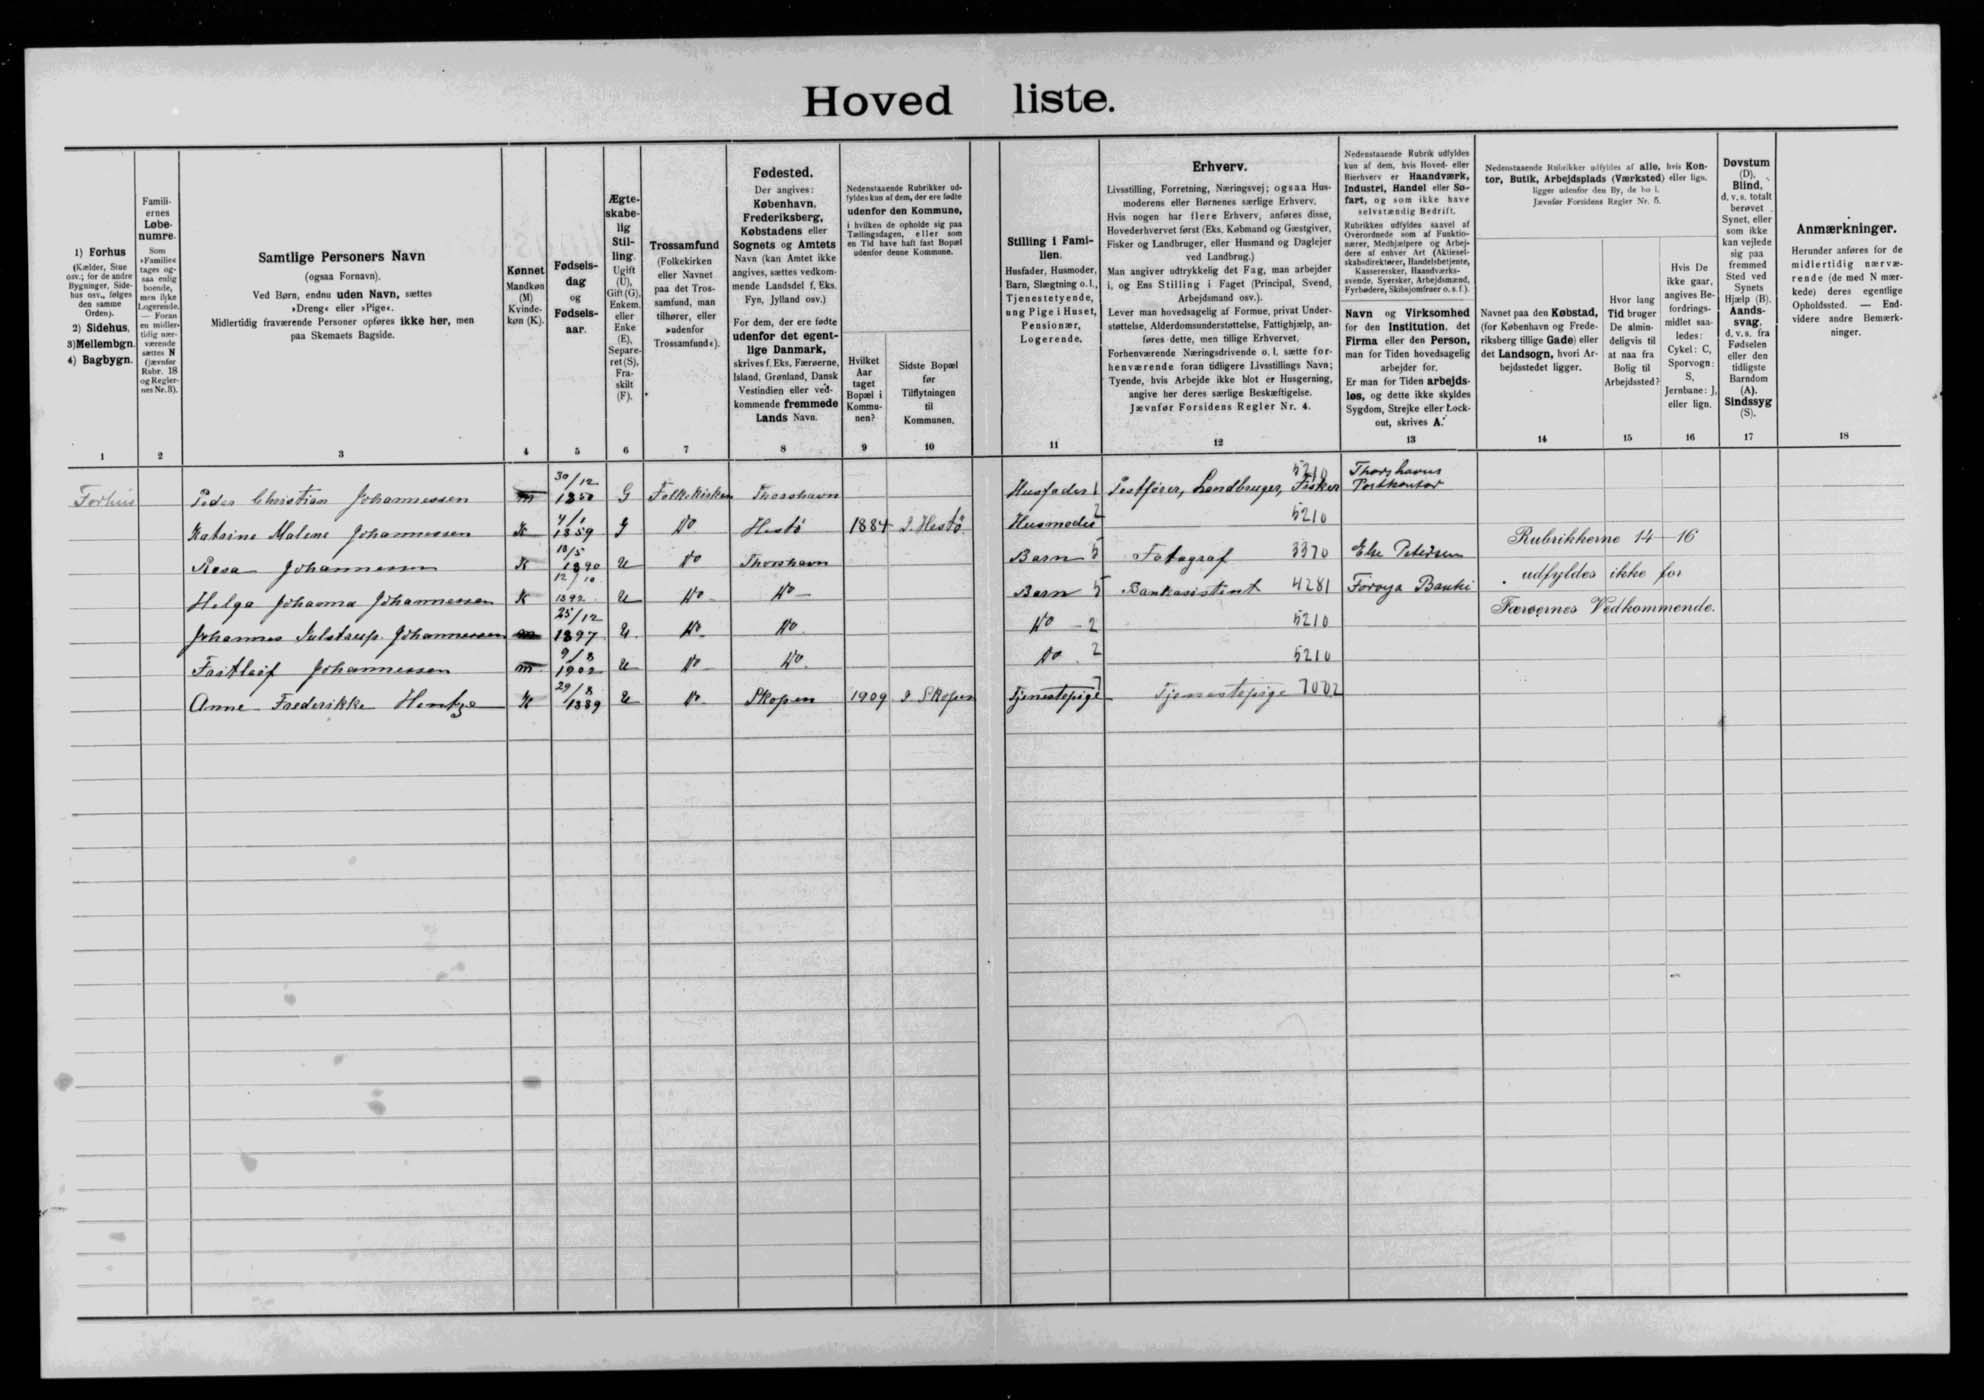 Hoved liste.
1) Forhus
(Kælder, Stue
osv.; for de andre
Bygninger, Side-
hus osv., følges
den samme
Orden).
2) Sidehus,
3) Mellembgn.
4) Bagbygn.
1
Famili-
ernes
Løbe-
numre.
Som
»Familie«
tages og-
saa enlig
boende,
men ikke
Logerende.
— Foran
en midler-
tidig nær-
værende
sættes N
(jævnfør
Rubr. 18
og Regler-
nes Nr. 3).
2
Samtlige Personers Navn
(ogsaa Fornavn).
Ved Børn, endnu uden Navn, sættes
»Dreng« eller »Pige«.
Midlertidig fraværende Personer opføres ikke her, men
paa Skemaets Bagside.
3
Kønnet
Mandkøn
(M)
Kvinde-
køn (K).
4
Fødsels-
dag
og
Fødsels-
aar.
5
Ægte-
skabe-
lig
Stil-
ling.
Ugift
(U),
Gift (G),
Enkem.
eller
Enke
(E),
Separe-
ret (S),
Fra-
skilt
(F).
6
Trossamfund
(Folkekirken
eller Navnet
paa det Tros-
samfund, man
tilhører, eller
»udenfor
Trossamfund«).
7
Fødested.
Der angives:
København,
Frederiksberg,
Købstadens eller
Sognets og Amtets
Navn (kan Amtet ikke
angives, sættes vedkom-
mende Landsdel f. Eks.
Fyn, Jylland osv.)
For dem, der ere fødte
udenfor det egent-
lige Danmark,
skrives f. Eks. Færøerne,
Island, Grønland, Dansk
Vestindien eller ved-
kommende fremmede
Lands Navn.
8
Nedenstaaende Rubrikker ud-
fyldes kun af dem, der ere fødte
udenfor den Kommune,
i hvilken de opholde sig paa
Tællingsdagen, eller som
en Tid have haft fast Bopæl
udenfor denne Kommune.
Hvilket
Aar
taget
Bopæl i
Kommu-
nen?
9
Sidste Bopæl
før
Tilflytningen
til
Kommunen.
10
Stilling i Fami-
lien.
Husfader, Husmoder,
Barn, Slægtning o. l.,
Tjenestetyende,
ung Pige i Huset,
Pensionær,
Logerende.
11
Erhverv.
Livsstilling, Forretning, Næringsvej; ogsaa Hus-
moderens eller Børnenes særlige Erhverv.
Hvis nogen har flere Erhverv, anføres disse,
Hovederhvervet først (Eks. Købmand og Gæstgiver,
Fisker og Landbruger, eller Husmand og Daglejer
ved Landbrug.)
Man angiver udtrykkelig det Fag, man arbejder
i, og Ens Stilling i Faget (Principal, Svend,
Arbejdsmand osv.).
Lever man hovedsagelig af Formue, privat Under-
støttelse, Alderdomsunderstøttelse, Fattighjælp, an-
føres dette, men tillige Erhvervet.
Forhenværende Næringsdrivende o. l. sætte for-
henværende foran tidligere Livsstillings Navn;
Tyende, hvis Arbejde ikke blot er Husgerning,
angive her deres særlige Beskæftigelse.
Jævnfør Forsidens Regler Nr. 4.
12
Nedenstaaende Rubrik udfyldes
kun af dem, hvis Hoved- eller
Bierhverv er Haandværk,
Industri, Handel eller Sø-
fart, og som ikke have
selvstændig Bedrift.
Rubrikken udfyldes saavel af
Overordnede som af Funktio-
nærer, Medhjælpere og Arbej-
dere af enhver Art (Aktiesel-
skabsdirektører, Handelsbetjente,
Kasserersker, Haandværks-
svende, Syersker, Arbejdsmænd,
Fyrbødere, Skibsjomfruer o. s. f.).
Navn og Virksomhed
for den Institution, det
Firma eller den Person,
man for Tiden hovedsagelig
arbejder for.
Er man for Tiden arbejds-
løs, og dette ikke skyldes
Sygdom, Strejke eller Lock-
out, skrives A.
13
Nedenstaaende Rubrikker udfyldes af alle, hvis Kon-
tor, Butik, Arbejdsplads (Værksted) eller lign.
ligger udenfor den By, de bo i.
Jævnfør Forsidens Regler Nr. 5.
Navnet paa den Købstad,
(for København og Frede-
riksberg tillige Gade) eller
det Landsogn, hvori Ar-
bejdsstedet ligger.
14
Hvor lang
Tid bruger
De almin-
deligvis til
at naa fra
Bolig til
Arbejdssted?
15
Hvis De
ikke gaar,
angives Be-
fordrings-
midlet saa-
ledes:
Cykel: C,
Sporvogn:
S,
Jernbane: J,
eller lign.
16
Døvstum
(D).
Blind,
d. v. s. totalt
berøvet
Synet, eller
som ikke
kan vejlede
sig paa
fremmed
Sted ved
Synets
Hjælp (B).
Aands-
svag,
d. v. s. fra
Fødselen
eller den
tidligste
Barndom
(A).
Sindssyg
(S).
17
Anmærkninger.
Herunder anføres for de
midlertidig nærvæ-
rende (de med N mær-
kede) deres egentlige
Opholdssted. — End-
videre andre Bemærk-
ninger.
18
Forhus Peder Christian Johannessen m 30/12 1850 G Folkekirken Thorshavn Husfader 1 Postfører, Landbruger, Fisker 5210 Thorshavns Postkontor
Katrine Malene Johannessen K 4/1 1859 G Do Hestø 1884 I. Hestø Husmoder 2 5210
Rosa Johannessen K 18/5 1890 U Do Thorshavn Barn 5 Fotograf 3370 Else Petersen
Helga Johanna Johannessen K 12/10 1892 U Do Do Barn 5 Bankasistent 4281 Føroya Banki
Johannes Julstrup Johannessen m 25/12 1897 U. Do Do Do 2 5210
Fritleif Johannessen m 9/8 1902 U Do Do. Do. 2 5210
Anne Frederikke Hentze K 29/8 1889 U Do. Skopen 1909 I. Skopen Tjenestepige 7 Tjenestepige 7002
Rubrikkerne 14-16
udfyldes ikke for
Færøernes Vedkommende.